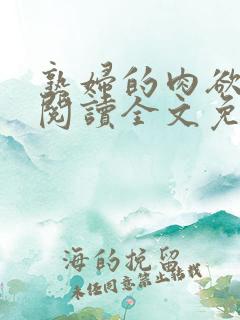 熟婦的肉欲
閱讀全文免
海的挽留
未经同意禁止转载